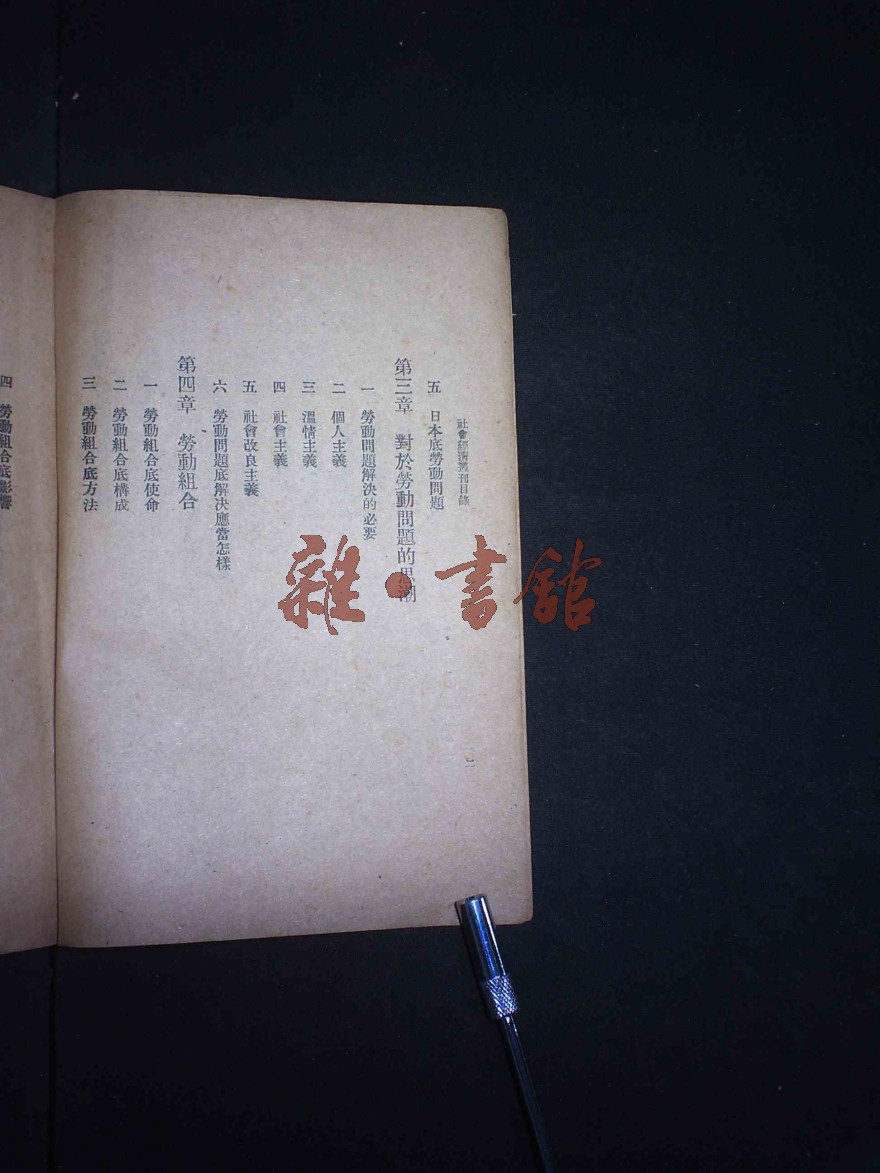 社會經濟叢刊目錄
五 日本底勞動問題
第三章 對於勞動問題的思潮
一 勞動問題解決的必要
二 個人主義
三 溫情主義
四 社會主義
五 社會改良主義
六 勞動問題底解決應當怎樣
第四章 勞動組合
一 勞動組合底使命
二 勞動組合底構成
三 勞動組合底方法
二
四 勞動組合底影響
雜·書館